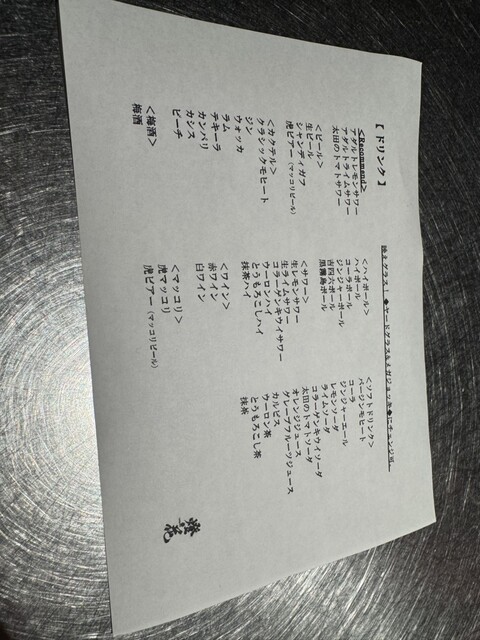 【 ドリンク 】
<Recommend>
アダルトレモンサワー
アダルトライムサワー
太田のトマトサワー
<ビール>
生ビール
シャンディガフ
虎ビアー (マッコリビール)
<カクテル>
クラシックモヒート
ジン
ウォッカ
ラム
テキーラ
カンパリ
カシス
ピーチ
<梅酒>
梅酒
◆ヤードグラス&メガジョッキ◆にチェンジ可
<ハイボール>
ハイボール
コーラボール
ジンジャーボール
吉四六ボール
黒霧島ボール
<サワー>
生レモンサワー
生ライムサワー
コラーゲンキウイサワー
ウーロンハイ
とうもろこしハイ
抹茶ハイ
<ワイン>
赤ワイン
白ワイン
<マッコリ>
虎マッコリ
虎ビアー (マッコリビール)
<ソフトドリンク>
バージンモヒート
コーラ
ジンジャーエール
レモンソーダ
ライムソーダ
コラーゲンキウイソーダ
太田のトマトソーダ
オレンジジュース
グレープフルーツジュース
カルピス
ウーロン茶
とうもろこし茶
抹茶